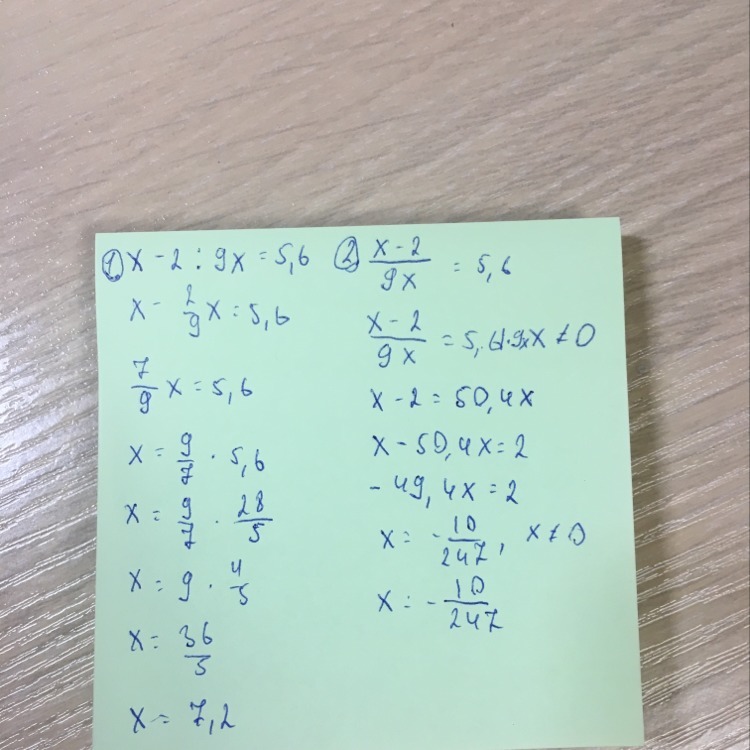 ① x - 2 : 9x = 5,6
x - 2/9 x = 5,6
7/9 x = 5,6
x = 9/7 · 5,6
x = 9/7 · 28/5
x = 9 · 4/5
x = 36/5
x = 7,2
② (x - 2)/(9x) = 5,6
(x - 2)/(9x) = 5,6 | · 9x x ≠ 0
x - 2 = 50,4x
x - 50,4x = 2
- 49,4x = 2
x = - 10/247, x ≠ 0
x = - 10/247